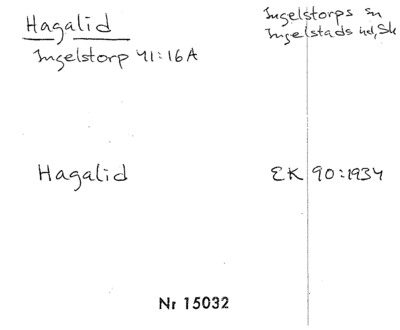 Hagalid
Ingelstorp 41:16A
Ingelstorps sn
Ingelstads hd, Sk
Hagalid
EK 90:1934
Nr 15032